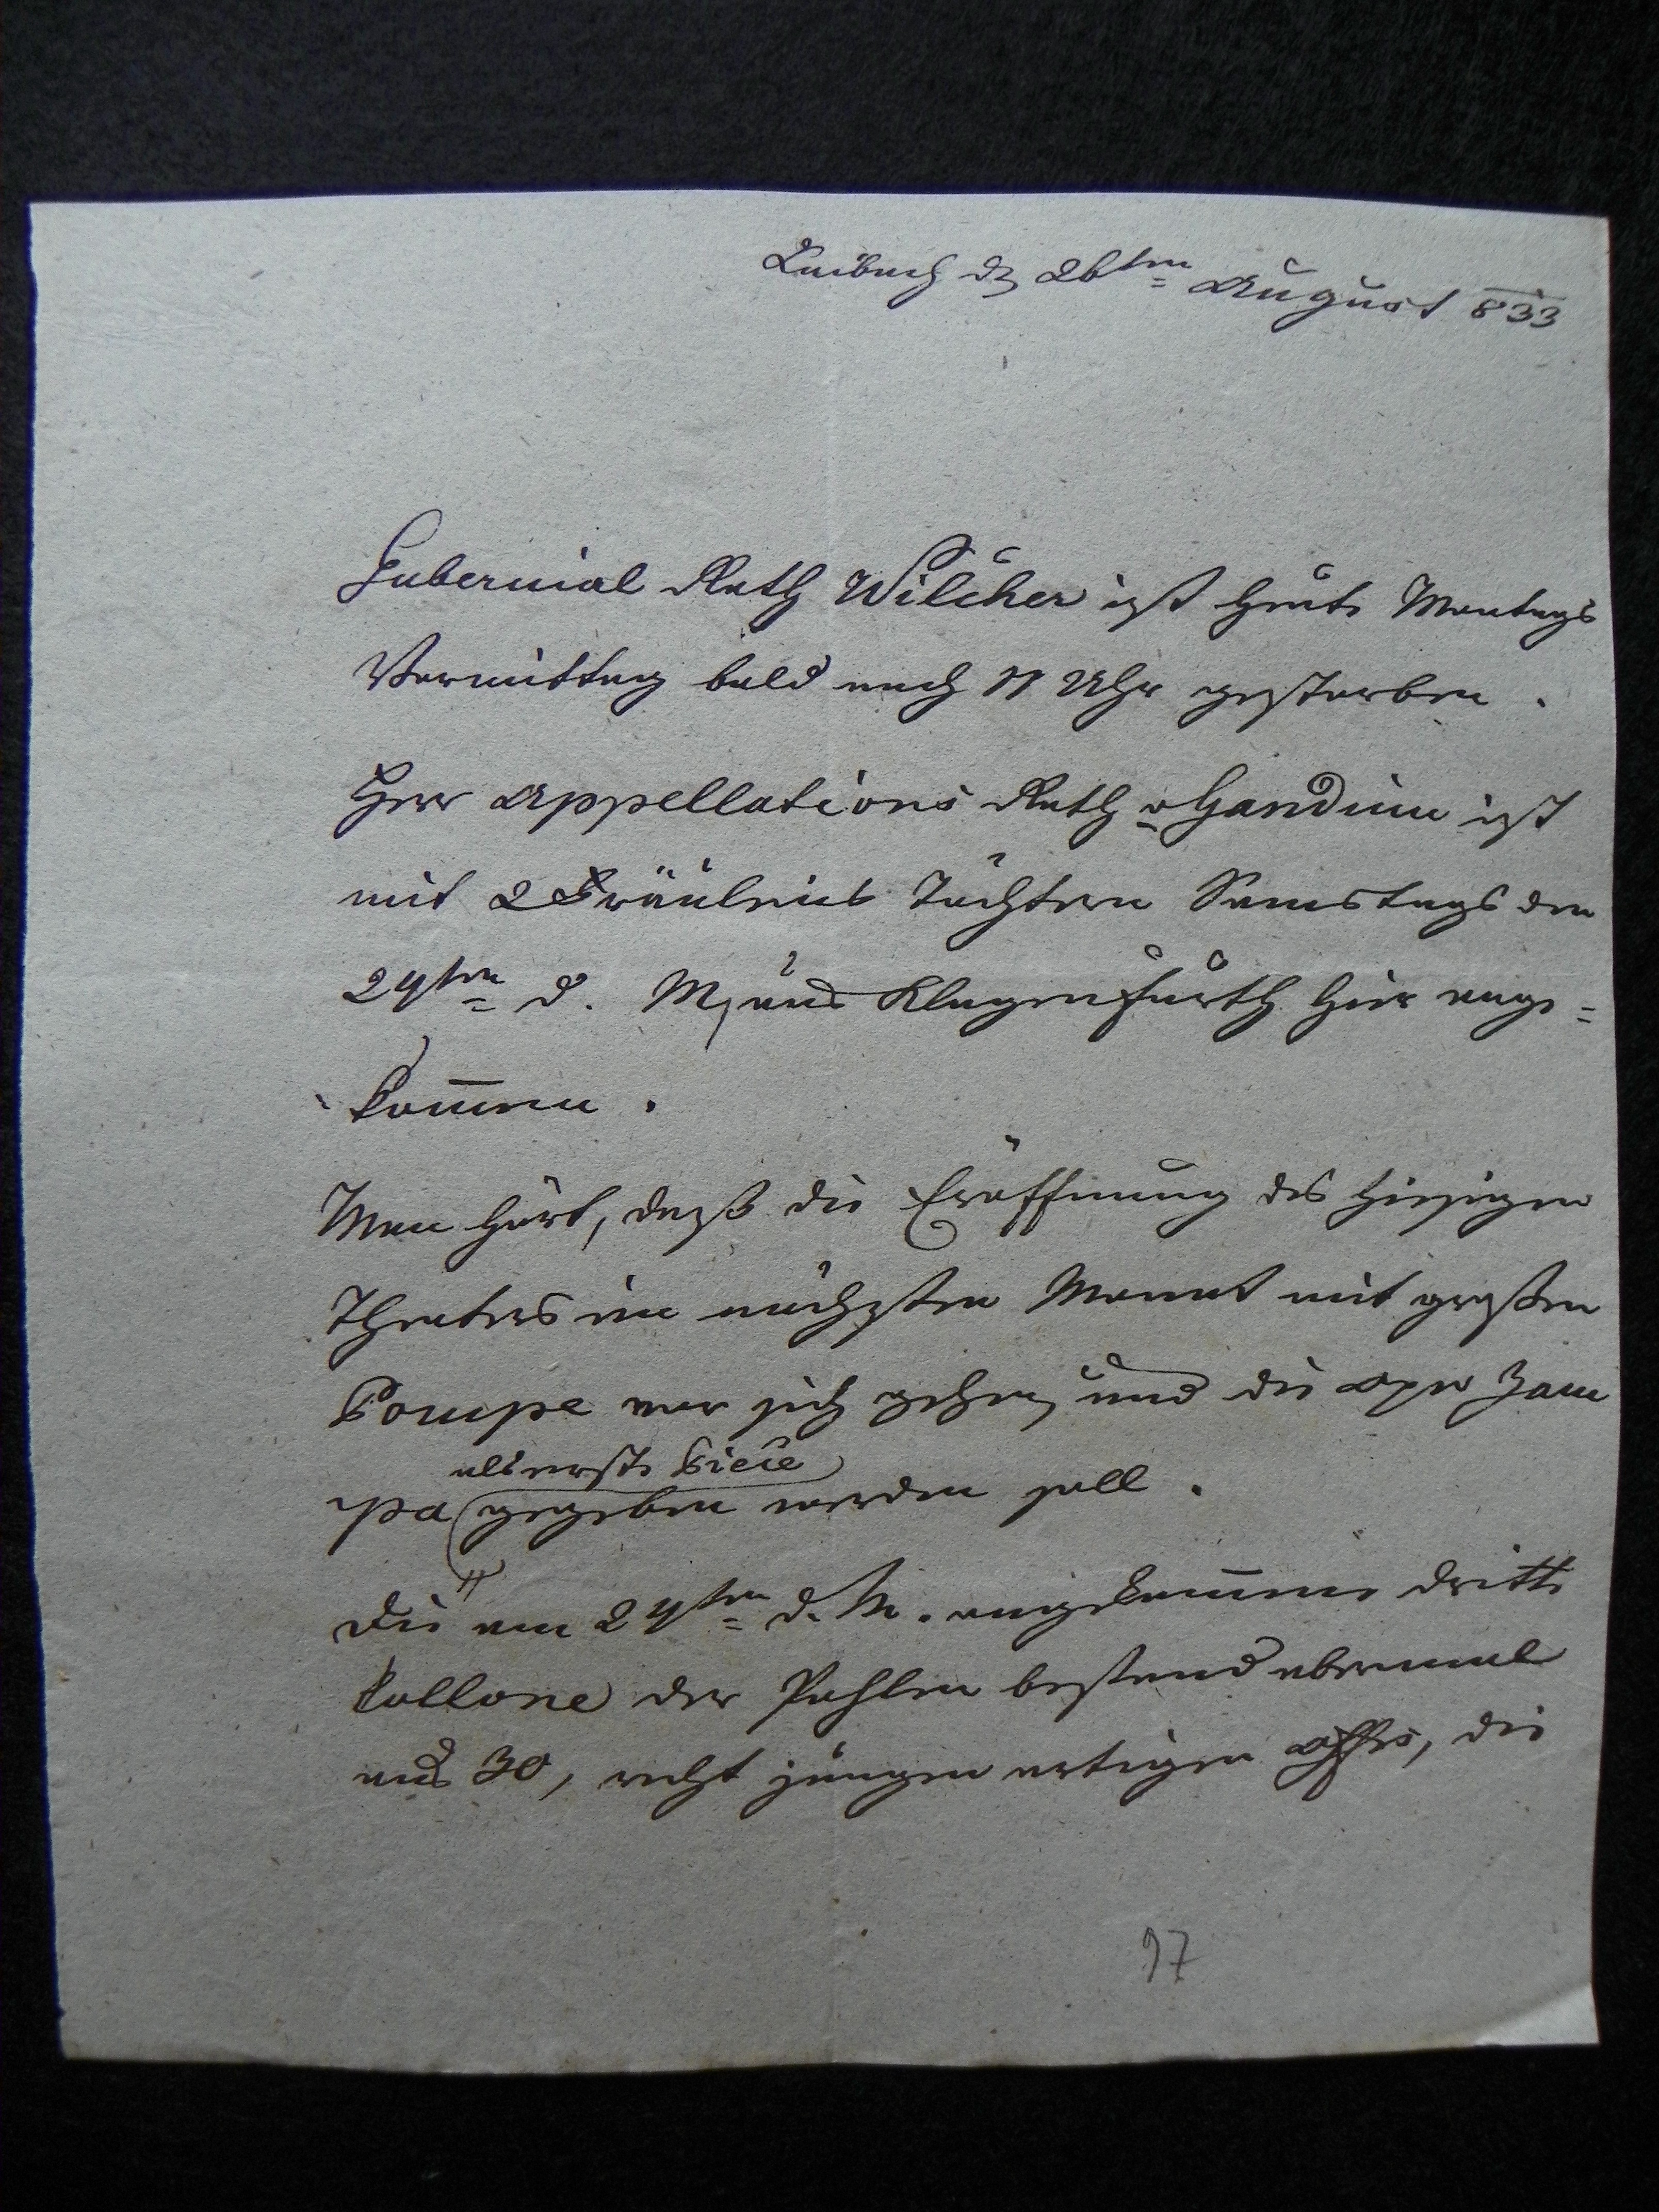 Laibach den 26ten August 833
Gubernial Rath Wilcher ist heute Montags
Vormittag bald nach 11 Uhr gestorben.
Herr Appellations Rath v Gandini ist
mit 2 Fräuleins Töchtern Samstags den
24ten d. M, aus Klagenfurth hier ange=
kom̅en.
Man hört, daß die Eröffnung des hiesigen
Theaters im nächsten Monat mit großen
Pompe vor sich gehen, und die Oper Zam
als erste Piece
pa gegeben werden soll.
Die am 24ten d. M. angekom̅ene dritte
Kollone der Pohlen bestand abermal
aus 30, recht jungen artigen Offrs, die
97